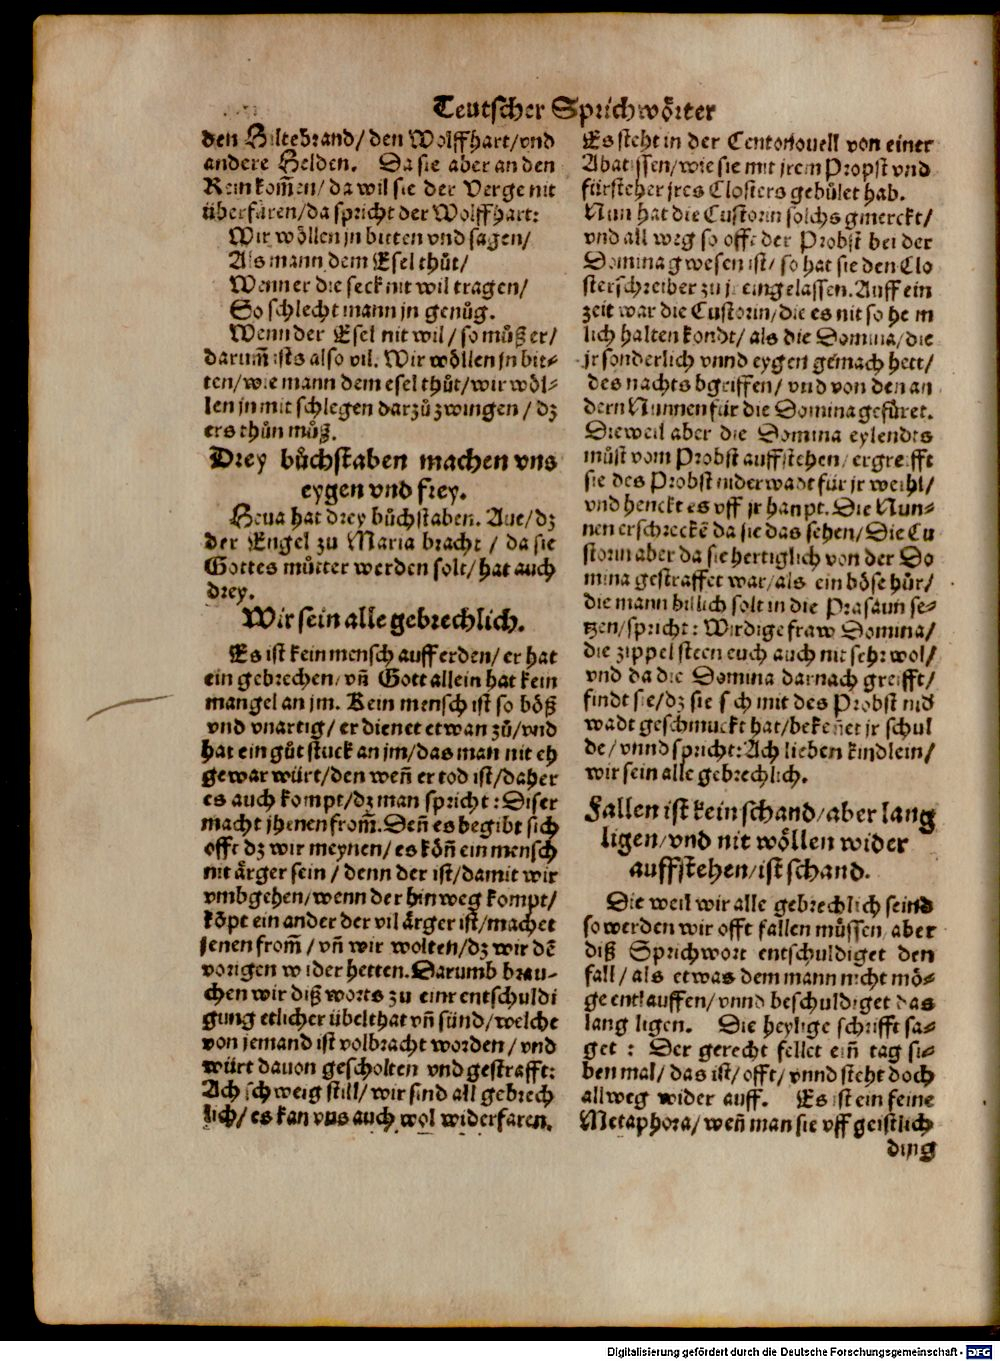 Teutscher Sprichwörter
den Hiltebrand/ den Wolffhart/ vnd
andere Helden. Da sie aber an den
Rein kom̃en/ da wil sie der Verge nit
überfüren/ da spricht der Wolffhart:
Wir wöllen jn bitten vnd sagen/
Als mann dem Esel thůt/
Wenn er die seck nit wil tragen/
So schlecht mann jn genůg.
Wenn der Esel nit wil/ so můß er/
darum̃ ists also vil. Wir wöllen jn bit⸗
ten/ wie mann dem esel thůt/ wir wöl⸗
len jn mit schlegen darzů zwingen/ dz
ers thůn můß.
Drey bůchstaben machen vns
eygen vnd frey.
Heua hat drey bůchstaben. Aue/ dz
der Engel zu Maria bracht/ da sie
Gottes můtter werden solt/ hat auch
drey.
Wir sein alle gebrechlich.
Es ist kein mensch auff erden/ er hat
ein gebrechen/ vñ Gott allein hat kein
mangel an jm. Kein mensch ist so böß
vnd vnartig/ er dienet etwan zů/ vnd
hat ein gůt stuck an jm/ das man nit eh
gewar würt/ den weñ er tod ist/ daher
es auch kompt/ dz man spricht: Diser
macht jhenen from̃. Deñ es begibt sich
offt dz wir meynen/ es köñ ein mensch
nit ärger sein/ denn der ist/ damit wir
vmbgehen/ wenn der hinweg kompt/
köpt ein ander der vil ärger ist/ machet
jenen from̃/ vñ wir wolten/ dz wir dẽ
vorigen wider hetten. Darumb brau⸗
chen wir diß worts zu einr entschuldi
gung etlicher übelthat vñ sünd/ welche
von jemand ist volbracht worden/ vnd
würt dauon gescholten vnd gestrafft:
Ach schweig still/ wir sind all gebrech
lich/ es kan vns auch wol widerfaren.
Es steht in der Centonouell von einer
Abatissen/ wie sie mit jrem Propst vnd
fürsteher jres Closters gebůlet hab.
Nun hat die Custorin solchs gmerckt/
vnd all weg so offt der Probst bei der
Domina gwesen ist/ so hat sie den Clo
sterschreiber zu jr eingelassen. Auff ein
zeit war die Custorin/ die es nit so heim
lich halten kondt/ als die Domina/ die
jr sonderlich vnnd eygen gemach hett/
des nachts bgriffen/ vnd von den an
dern Nunnen für die Domina gefüret.
Dieweil aber die Domina eylendts
můst vom Probst auffstehen/ ergreifft
sie des Probst niderwadt für jr weihl/
vnd henckt es vff jr haupt. Die Nun⸗
nen erschreckẽ da sie das sehen/ Die Cu
storin aber da sie hertiglich von der Do
mina gestraffet war/ als ein böse hůr/
die mann billich solt in die Prasaun se⸗
tzen/ spricht: Wirdige fraw Domina/
die zippel steen euch auch nit sehr wol/
vnd da die Domina darnach greifft/
findt sie/ dz sie sich mit des Probst nid
wadt geschmuckt hat/ bekeñet jr schul
de/ vnnd spricht: Ach lieben kindlein/
wir sein alle gebrechlich.
Fallen ist kein schand/ aber lang
ligen/ vnd nit wöllen wider
auffstehen/ ist schand.
Die weil wir alle gebrechlich seind
so werden wir offt fallen müssen/ aber
diß Sprichwort entschuldiget den
fall/ als etwas dem mann nicht mö⸗
ge entlauffen/ vnnd beschuldiget das
lang ligen. Die heylige schrifft sa⸗
get: Der gerecht fellet eiñ tag si⸗
ben mal/ das ist/ offt/ vnnd steht doch
allweg wider auff. Es ist ein feine
Metaphora/ weñ man sie vff geistlich
ding
Digitalisierung gefördert durch die Deutsche Forschungsgemeinschaft - DFG